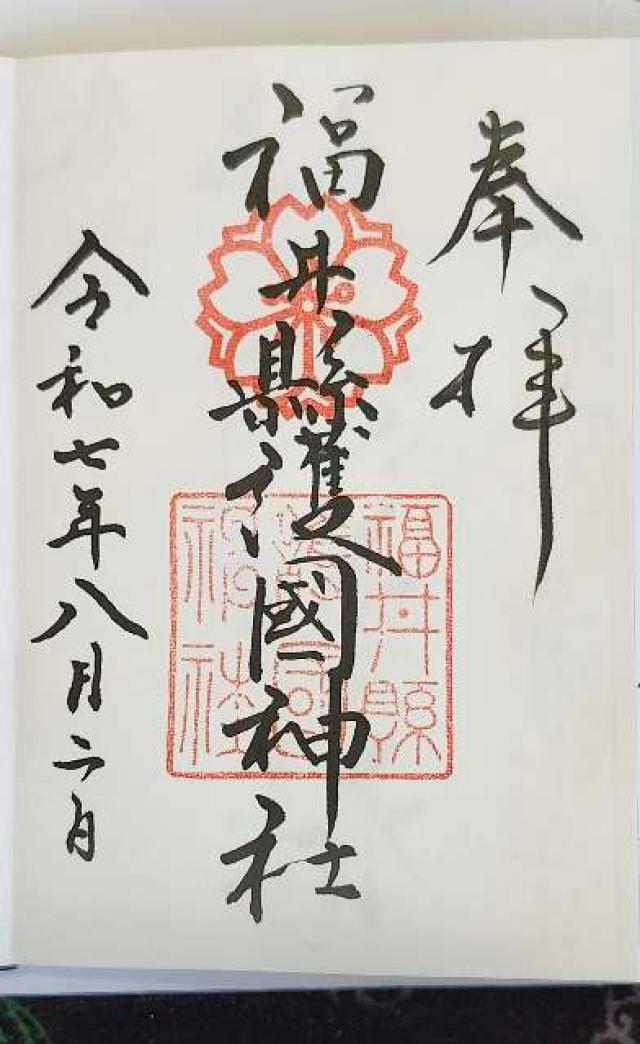 奉拝
福井縣護國神社
福井縣
護國
神社
令和七年八月二日